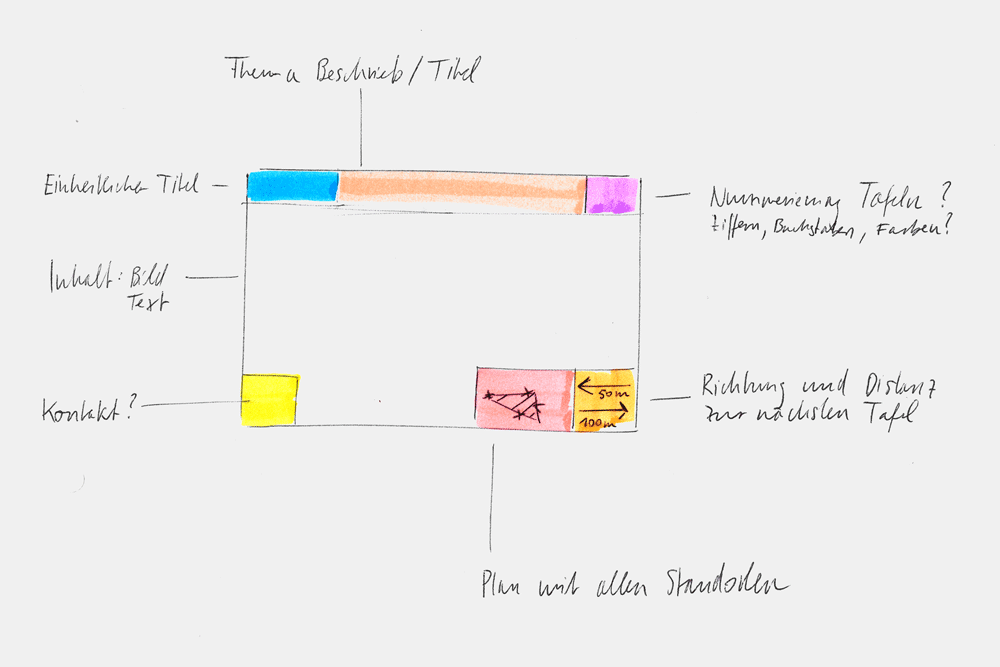 Thema Beschrieb / Titel
Einheitlicher Titel
Nummerierung Tafeln ?
Ziffern, Buchstaben, Farben?
Inhalt: Bild
Text
50m
100m
Kontakt?
Richtung und Distanz
zur nächsten Tafel
Plan mit allen Standorten